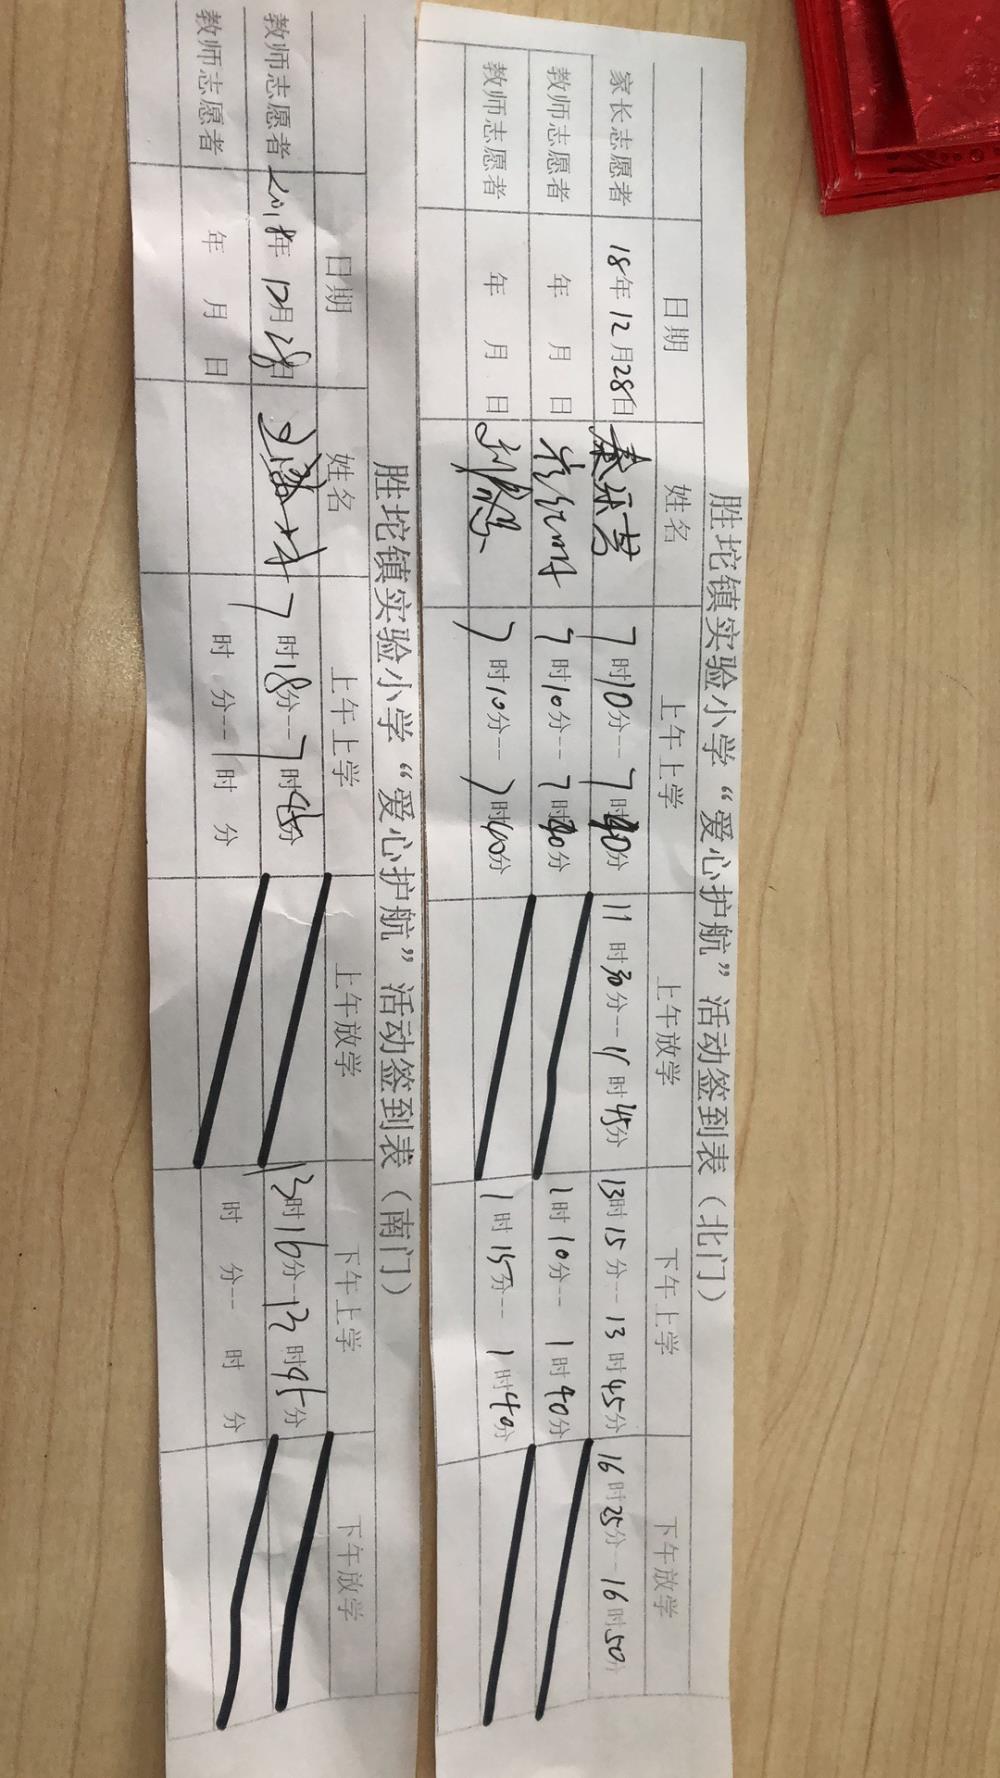 胜坨镇实验小学“爱心护航”活动签到表（北门）
日期 姓名 上午上学 上午放学 下午上学 下午放学
家长志愿者 18年12月28日 秦乐芳 7时10分--7时40分 11时30分--11时45分 13时15分--13时45分 16时25分--16时50分
教师志愿者 年 月 日 7时10分--7时40分 1时10分--1时40分
教师志愿者 年 月 日 7时10分--7时40分 1时15分--1时40分
胜坨镇实验小学“爱心护航”活动签到表（南门）
日期 姓名 上午上学 上午放学 下午上学 下午放学
教师志愿者 2018年12月28日 7时18分--7时45分 13时16分--13时45分
教师志愿者 年 月 日 时 分--时 分 时 分--时 分